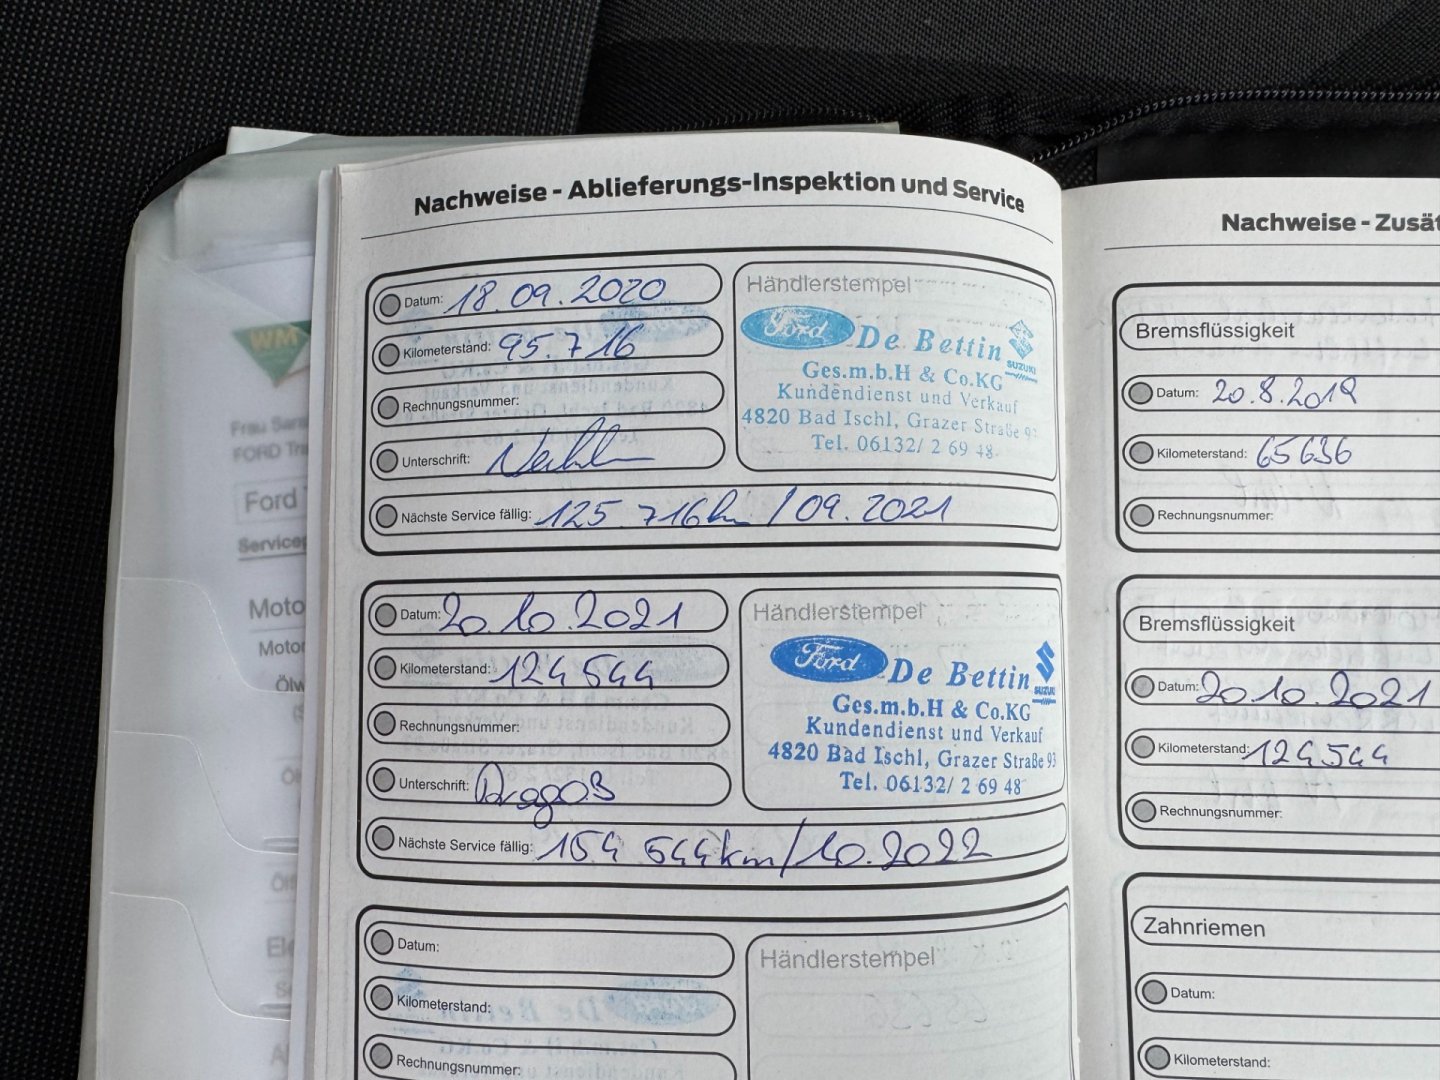 Nachweise - Ablieferungs-Inspektion und Service
Datum: 18.09.2020
Kilometerstand: 95.716
Rechnungsnummer:
Unterschrift:
Nächste Service fällig: 125.716km / 09.2021
Händlerstempel
Ford De Bettin
SUZUKI
Ges.m.b.H & Co.KG
Kundendienst und Verkauf
4820 Bad Ischl, Grazer Straße 93
Tel. 06132/ 2 69 48
Datum: 20.10.2021
Kilometerstand: 124544
Rechnungsnummer:
Unterschrift:
Nächste Service fällig: 154 544km/10.2022
Händlerstempel
Ford De Bettin
SUZUKI
Ges.m.b.H & Co.KG
Kundendienst und Verkauf
4820 Bad Ischl, Grazer Straße 93
Tel. 06132/ 2 69 48
Datum:
Kilometerstand:
Rechnungsnummer:
Händlerstempel
Nachweise - Zusät
Bremsflüssigkeit
Datum: 20.8.2019
Kilometerstand: 65636
Rechnungsnummer:
Bremsflüssigkeit
Datum: 20.10.2021
Kilometerstand: 124544
Rechnungsnummer:
Zahnriemen
Datum:
Kilometerstand:
WM
Frau
FORD
Ford
Moto
Motor